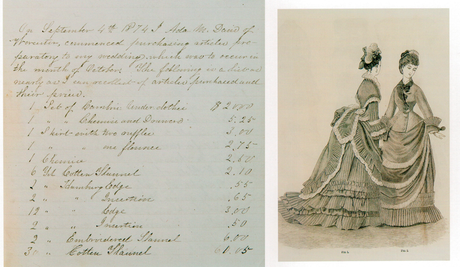 On September 4th 1874 I Ada M. David of
commenced purchasing articles pre-
paratory to my wedding which was to occur in
the month of October. The following is a
nearly as I can recollect of articles purchased and
their price.
1 Set of under clothes $20.00
1 " Chemise and Drawers 5.25
1 Skirt with two ruffles 3.00
1 " " one flounce 2.75
1 Chemise 2.60
6 Yds Cotton Flannel 2.10
2 " Hamburg Edge .55
2 " " Insertion .65
12 " Edge 3.00
2 " Insertion .50
2 " Embroidered Flannel 6.00
Cotton Flannel